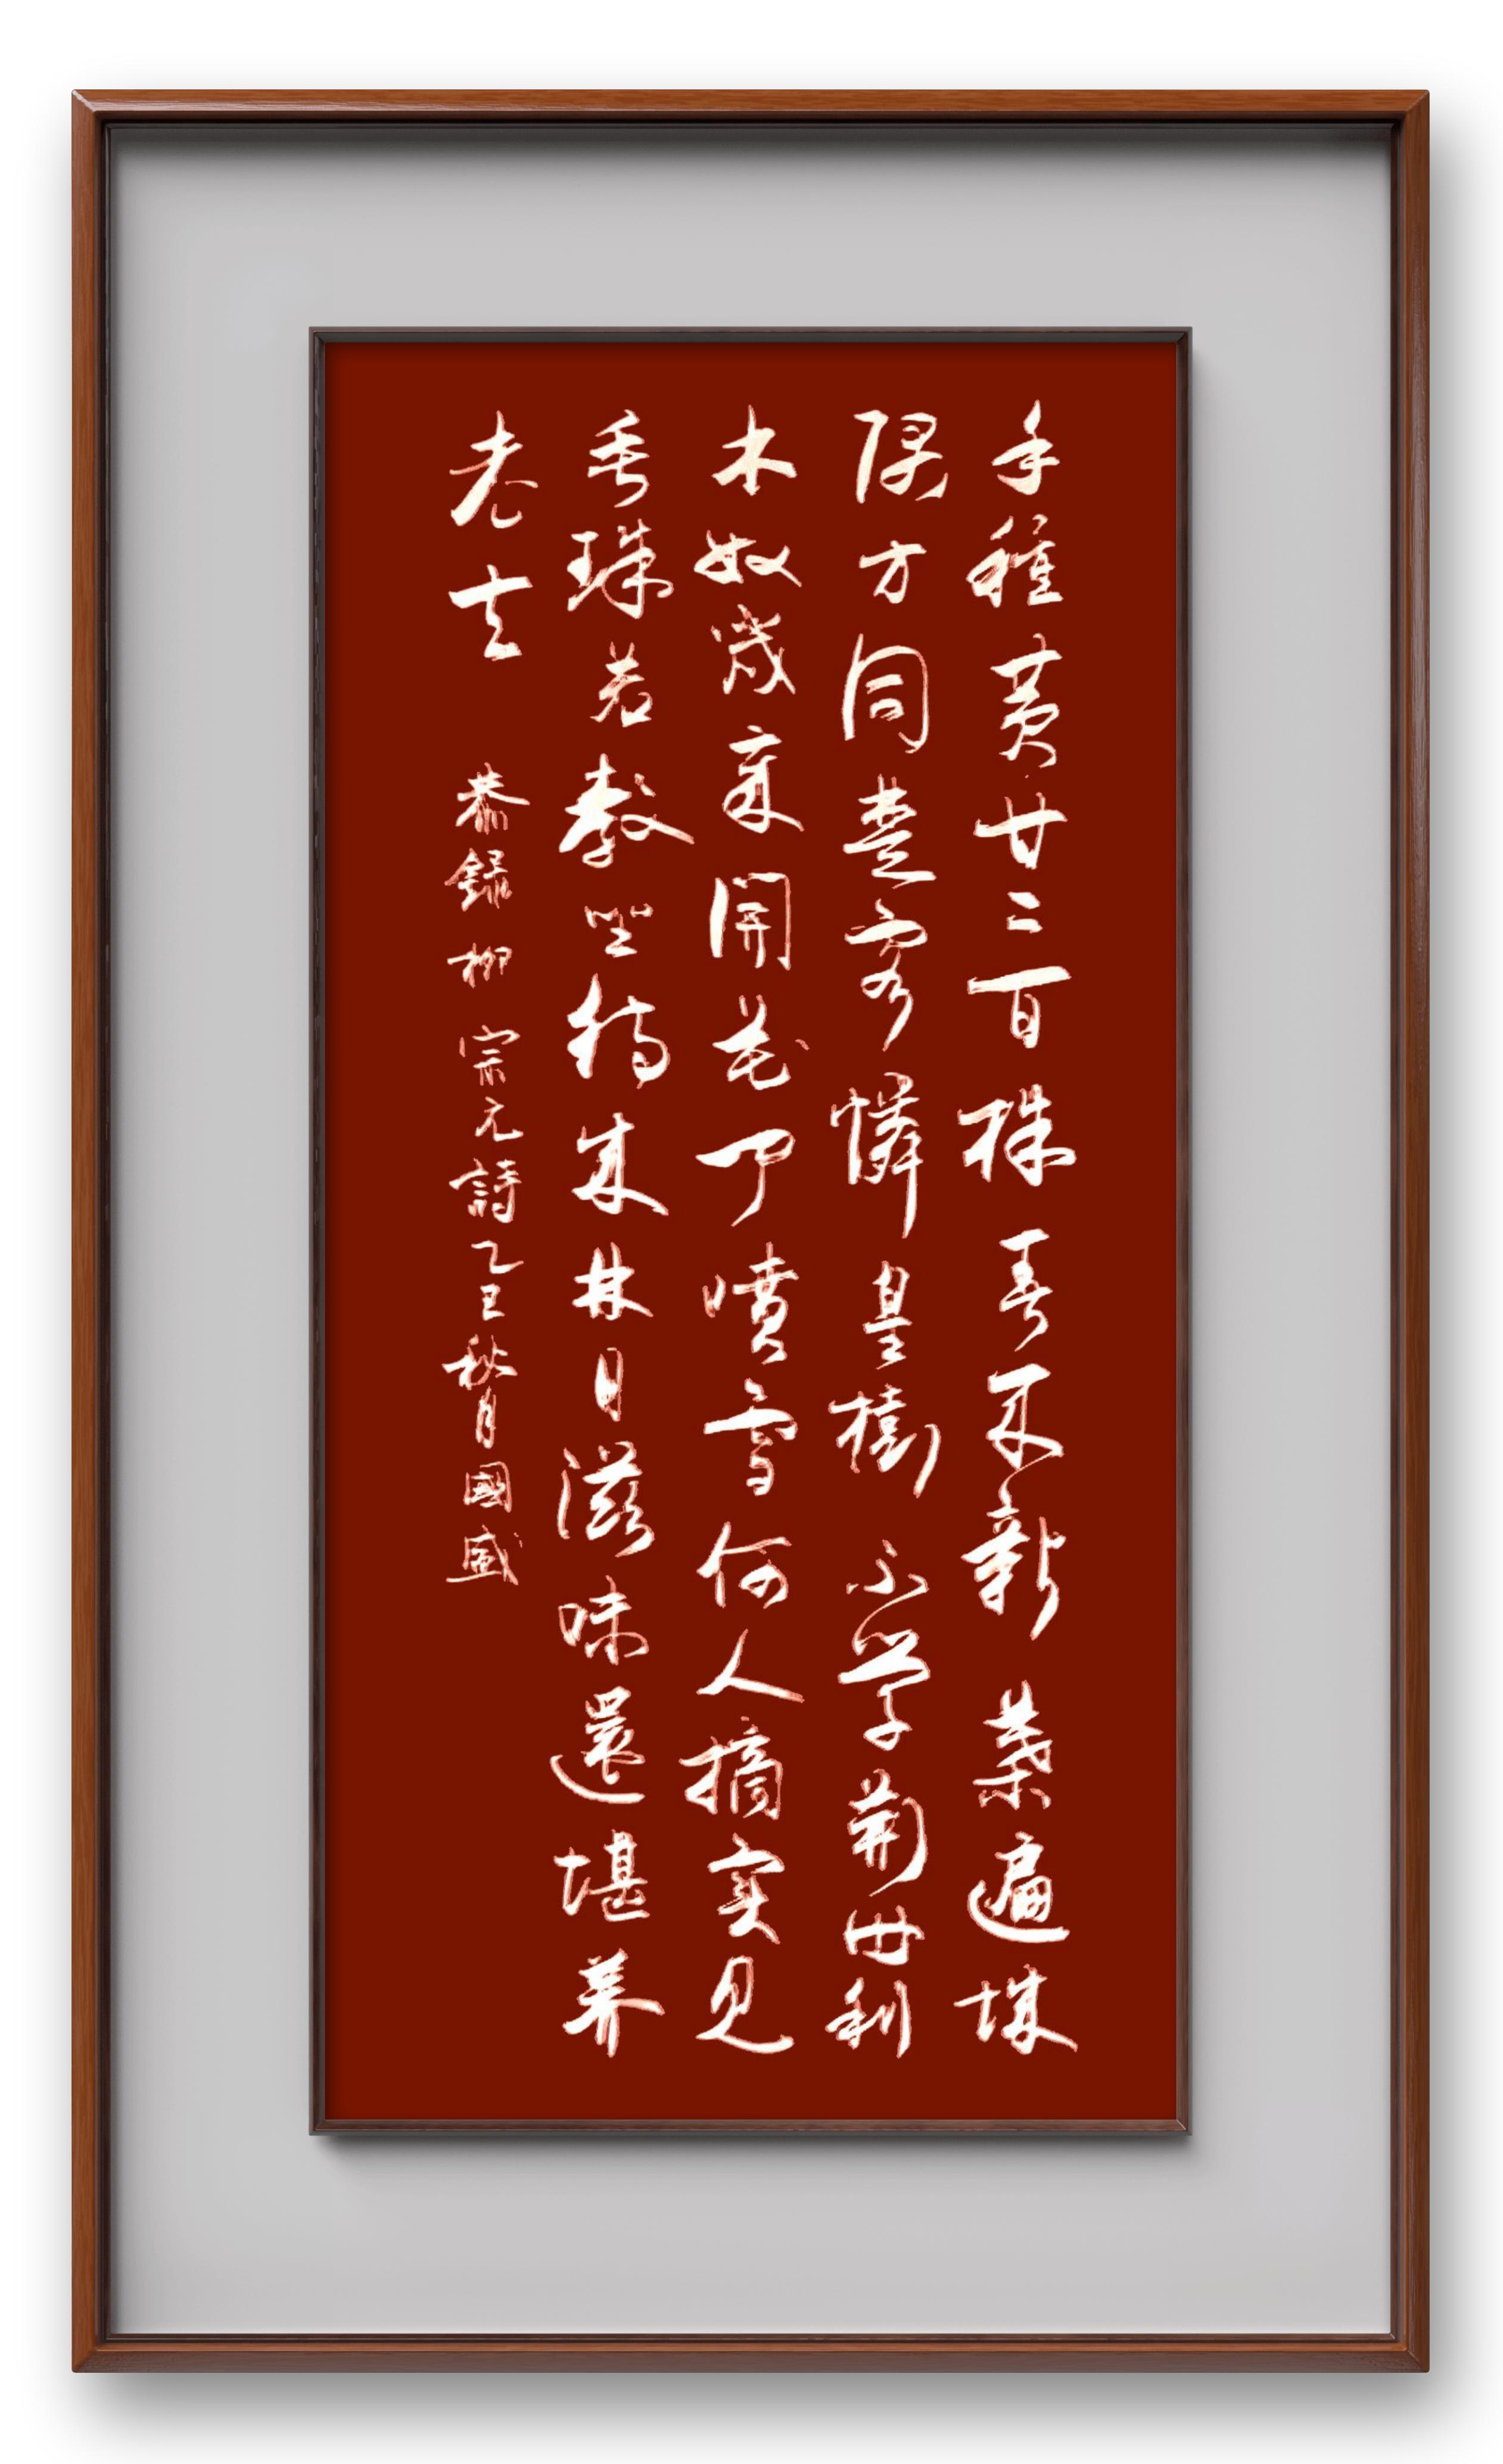 手種黃甘二百株春來新葉遍城
隅方同楚客憐皇樹不學荊州利
木奴幾歲開花聞噴雪何人摘實見
垂珠若教坐待成林日滋味還堪養
老夫 恭錄柳宗元詩乙丑秋月國盛